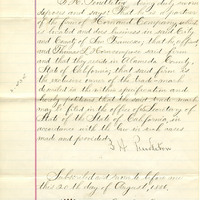 deposes and says: That he is a partner
of the firm of and Company, which
is located and does business in said City
and County of San Francisco, that
and Thomas L. compose said firm
and that they reside in Alameda County,
State of California; that said firm is
the exclusive owner of the trade mark
denoted in the within specification and
hereby petitions that the said trade mark
may be filed in the office of the Secretary
of State of the State of California, in
accordance with the law in such cases
made and provided.
J. H. Pendleton
Subscribed and sworn to before me
this 20th day of August,